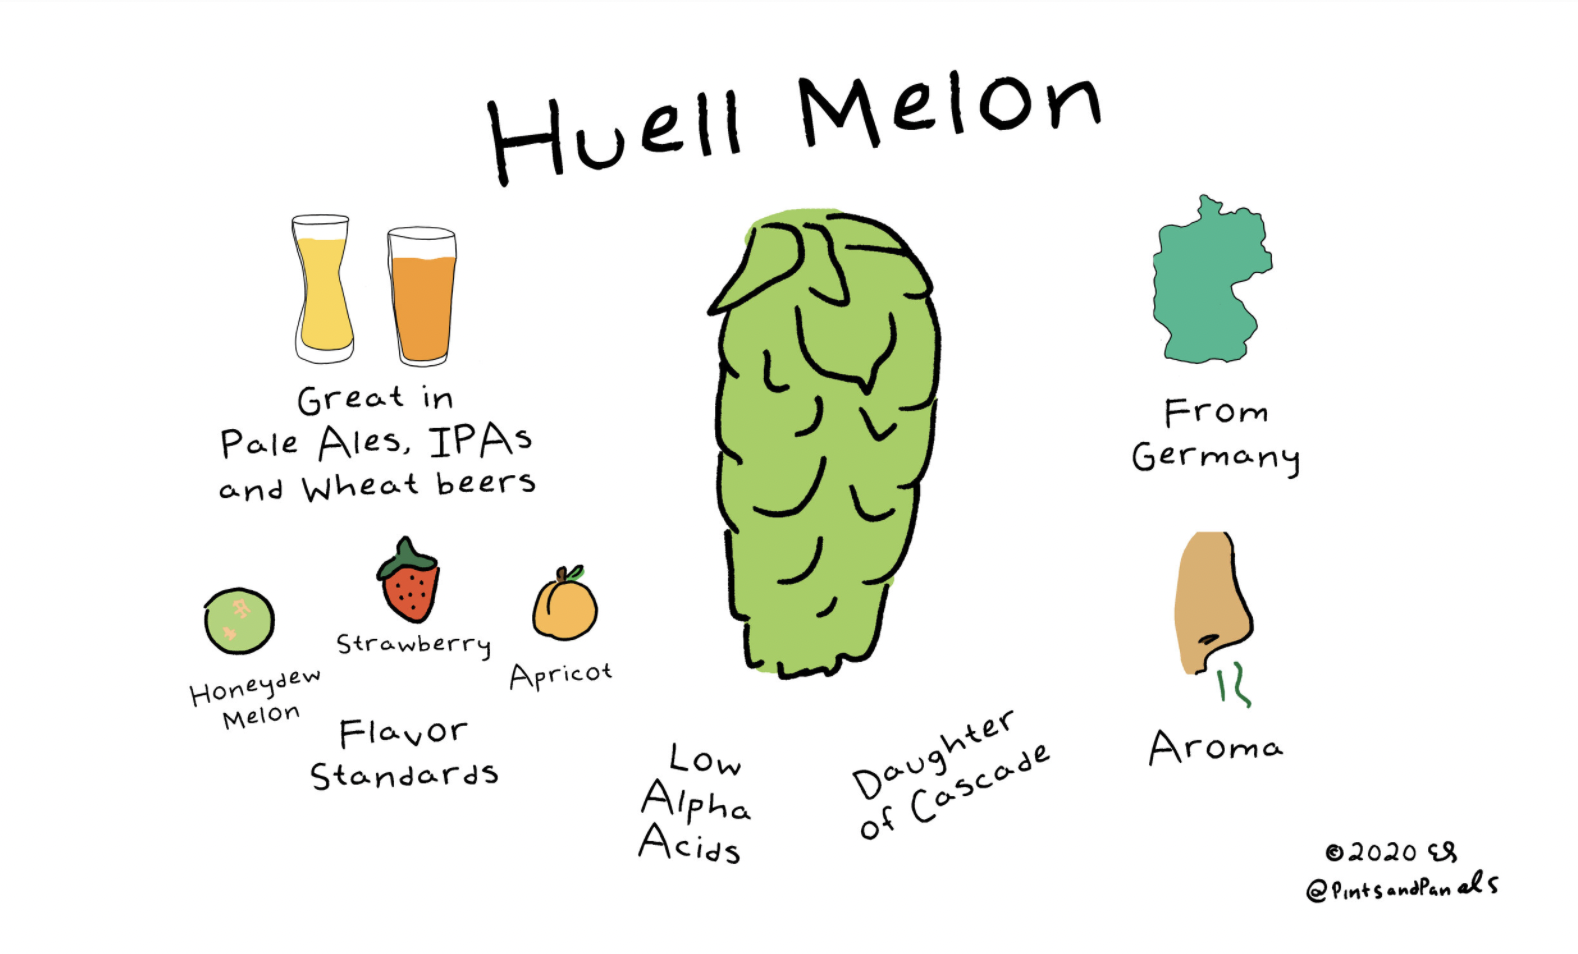 Huell Melon
Great in
Pale Ales, IPAs
and Wheat beers
From
Germany
Honeydew
Melon
Strawberry
Apricot
Flavor
Standards
Low
Alpha
Acids
Daughter
of Cascade
Aroma
©2020 ES
@PintsandPanels